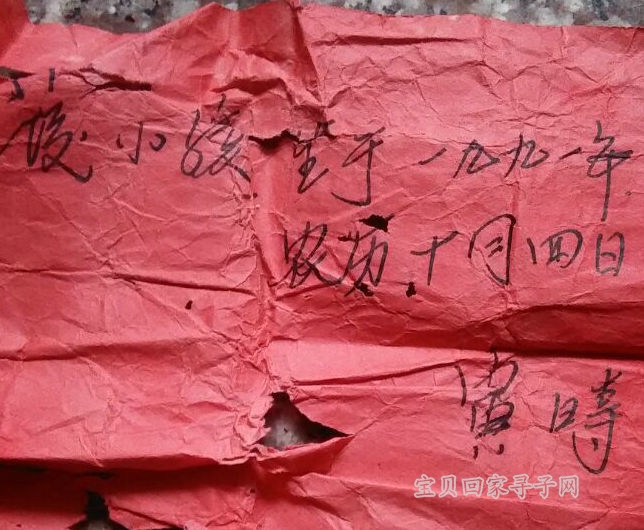 小孩 生于一九九一年
农历十月四日
寅時
宝贝回家寻子网